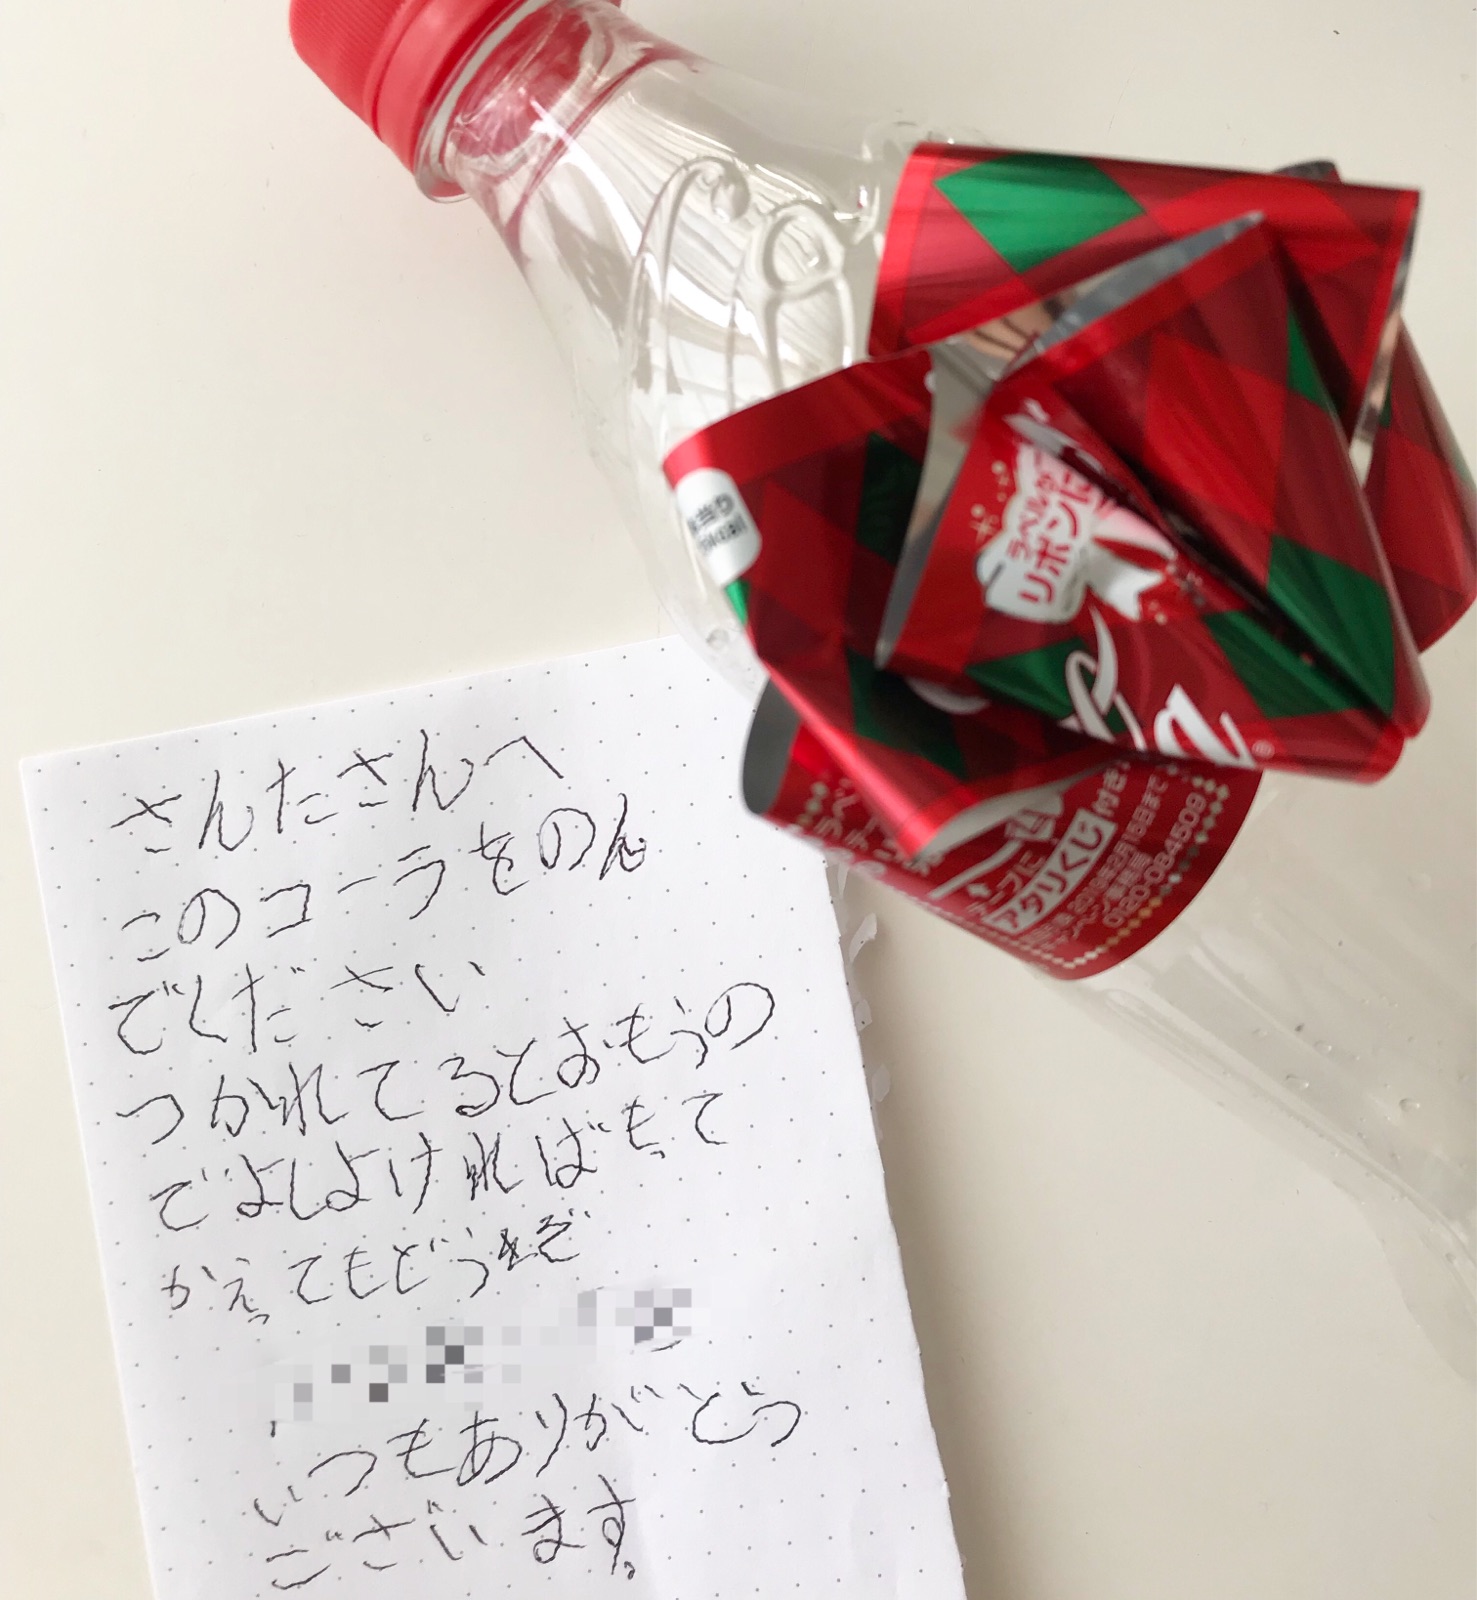 さんたさんへ
このコーラをのん
でください
つかれてるとおもうの
でよしよければもって
かえってもどうぞ
いつもありがとう
ございます。
ラベルが
リボンに
アタリくじ付き
0120-084509